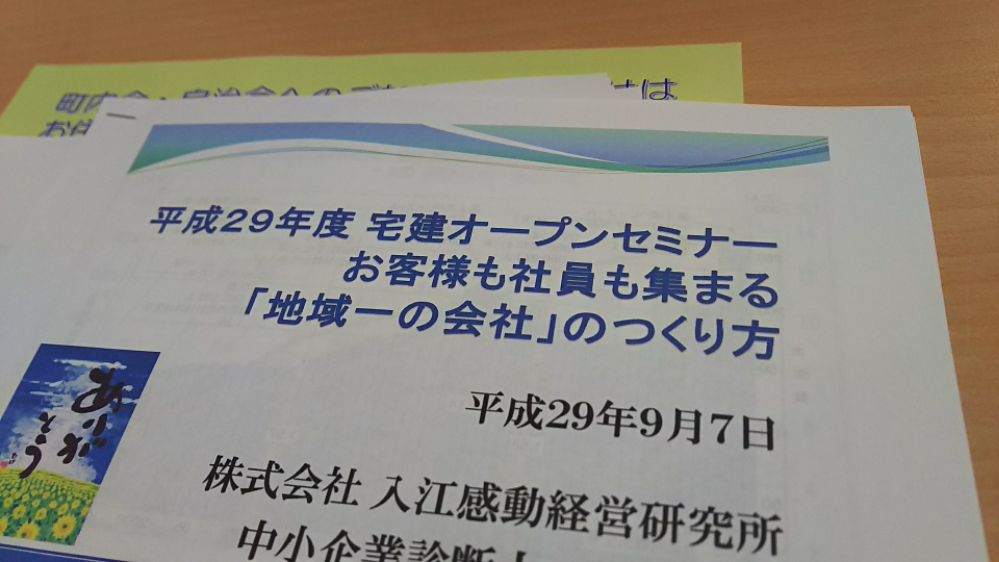 町内会・自治会への
は
お
平成29年度 宅建オープンセミナー
お客様も社員も集まる
「地域一の会社」のつくり方
平成29年9月7日
ありがとう
株式会社 入江感動経営研究所
中小企業診断士